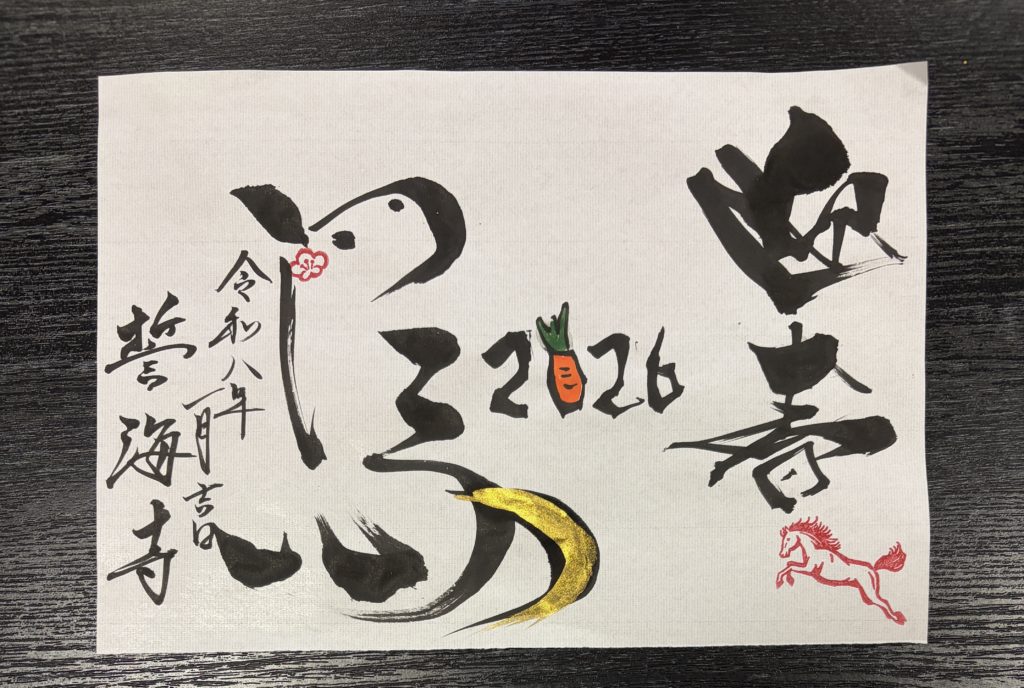 迎春
2026
馬
令和八年一月吉日
誓海寺